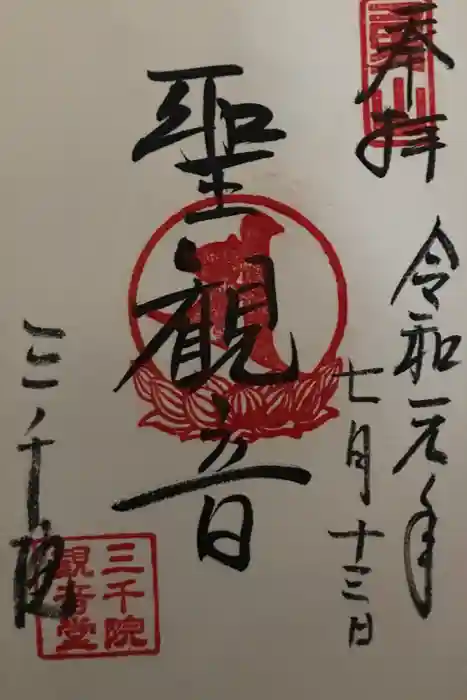 奉拝
令和元年
七月十三日
聖観音
三千院
三千院
観音堂